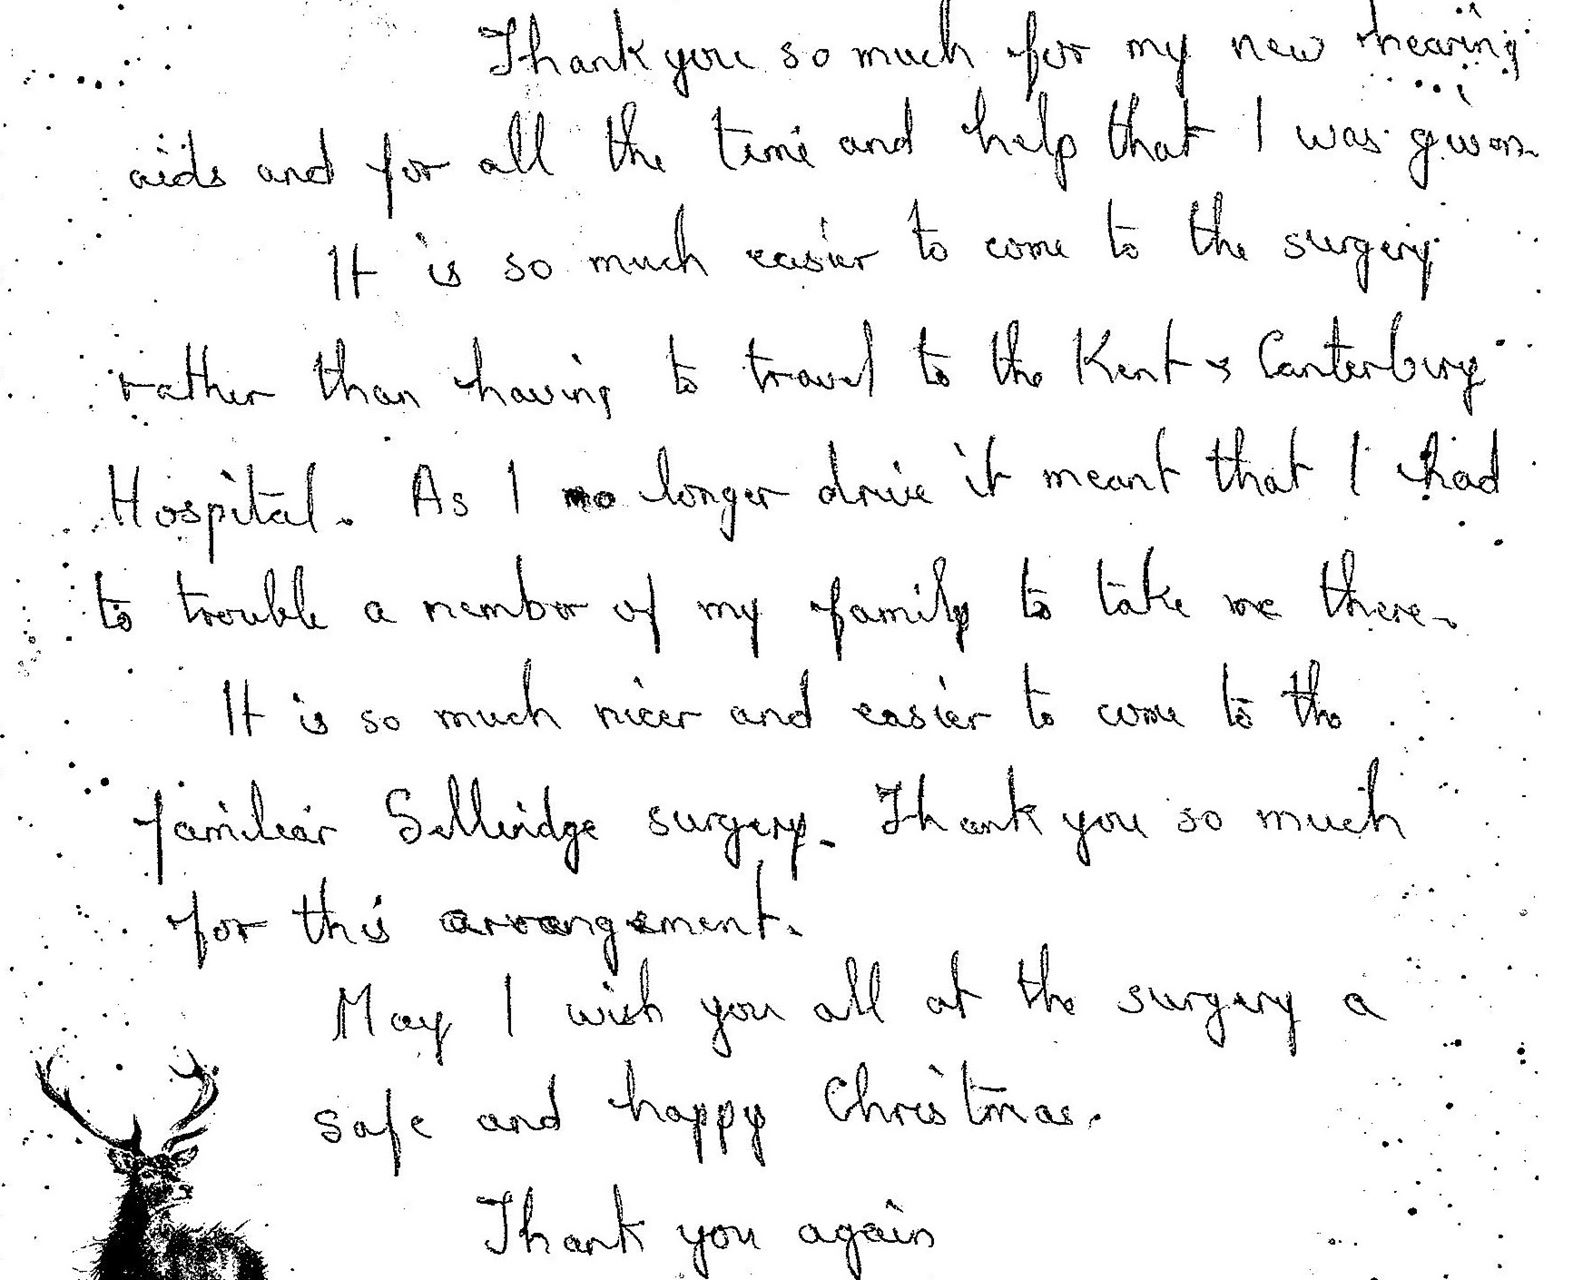 Thank you so much for my new hearing
aids and for all the time and help that I was given.
It is so much easier to come to the surgery
rather than having to travel to the Kent & Canterbury
Hospital. As I no longer drive it meant that I had
to trouble a member of my family to take me there.
It is so much nicer and easier to come to the
familiar Sellindge surgery. Thank you so much
for this arrangement.
May I wish you all at the surgery a
safe and happy Christmas.
Thank you again